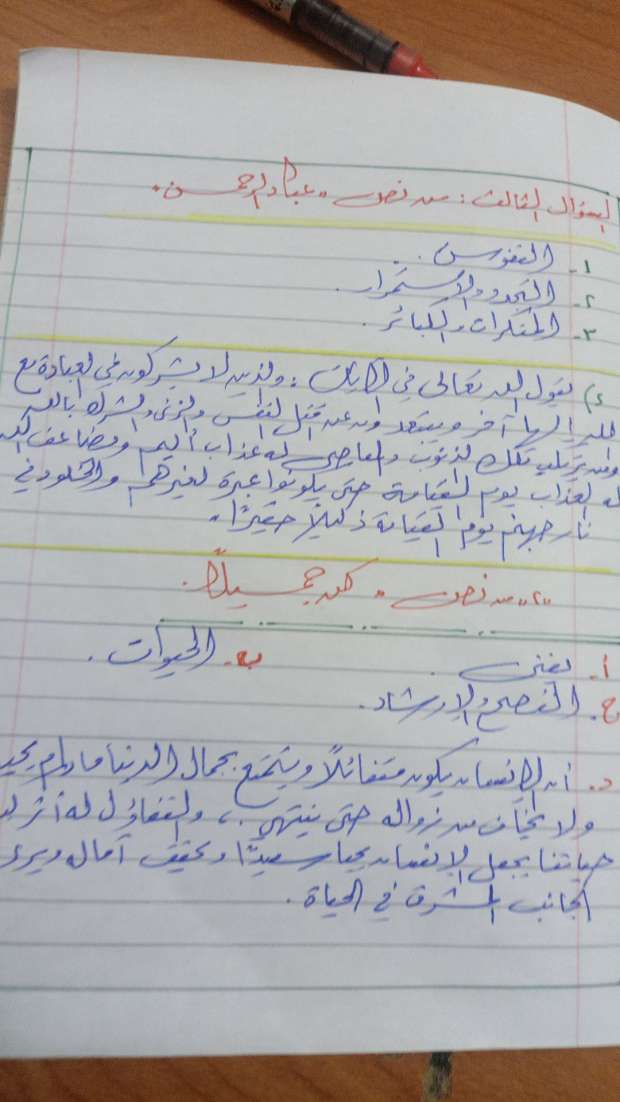 السؤال الثالث : من نص " عباد الرحمن "
١- النفوس .
٢- التجدد والاستمرار .
٣- المنكرات والكبائر .
٤) يقول الله تعالى في الآيات : والذين لا يشركون في العبادة مع
الله إلهاً آخر ويبتعدون عن قتل النفس والزنى والشرك بالله
ومن يرتكب تلك الذنوب والمعاصي له عذاب أليم ويضاعف الله
له العذاب يوم القيامة حتى يكونوا عبرة لغيرهم والخلود في
نار جهنم يوم القيامة ذليلاً حقيراً .
"٢" من نص " كن جميلاً "
أ- يفنى . ب- الحيوات .
ج- النصح والإرشاد .
د. أن الإنسان يكون متفائلاً ويتمتع بجمال الدنيا مادام يحيا
ولا يخاف من زواله حتى ينتهي ، والتفاؤل له أثر
حياتنا يجعل الإنسان يحيا سعيدًا ويحقق آماله ويرى
الجانب المشرق في الحياة .